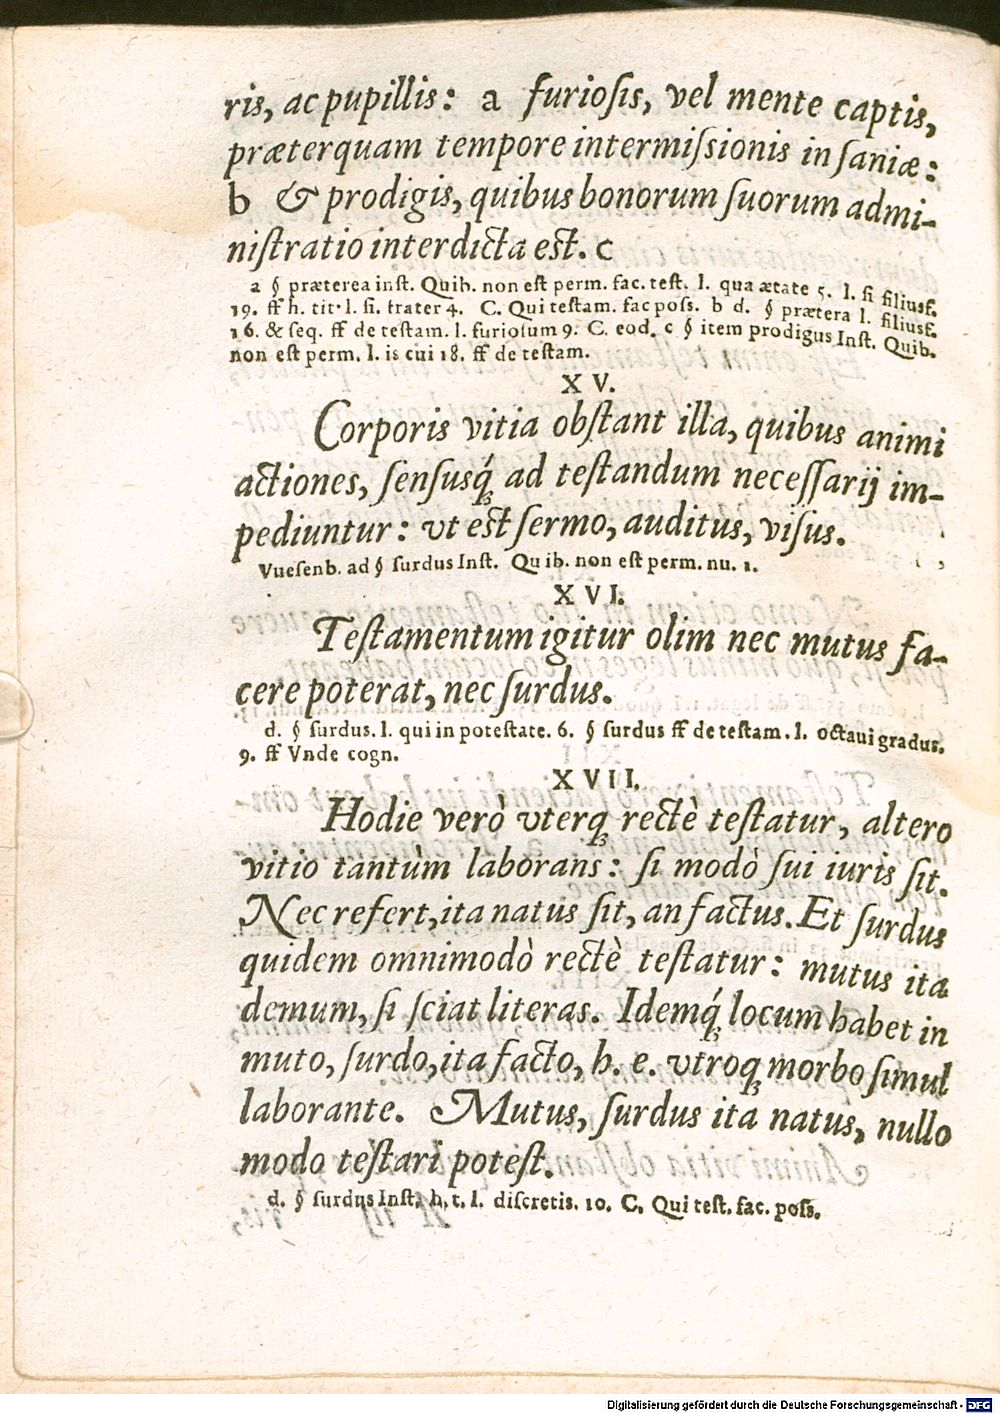 ris, ac pupillis: a furiosis, vel mente captis,
præterquam tempore intermiſsionis in ſaniæ:
b & prodigis, quibus bonorum ſuorum admi-
niſtratio interdicta eſt. c
a § præterea inſt. Quib. non eſt perm. fac. teſt. l. qua ætate 5. l. ſi filiusf.
19. ff h. tit. l. ſi. frater 4. C. Qui teſtam. fac poſſ. b d. § prætera l. filiusf.
16. & ſeq. ff de teſtam. l. furioſum 9. C. eod. c § item prodigus Inſt. Quib.
non eſt perm. l. is cui 18. ff de teſtam.
XV.
Corporis vitia obſtant illa, quibus animi
actiones, ſenſusq́ ad teſtandum neceſſarij im-
pediuntur: vt eſt ſermo, auditus, viſus.
Vuesenb. ad § ſurdus Inſt. Quib. non eſt perm. nu. 1.
XVI.
Teſtamentum igitur olim nec mutus fa-
cere poterat, nec ſurdus.
d. § ſurdus. l. qui in poteſtate. 6. § ſurdus ff de teſtam. l. octavi gradus.
9. ff Vnde cogn.
XVII.
Hodie verò vterq; rectè teſtatur, altero
vitio tantùm laborans: ſi modò ſui iuris ſit.
Nec refert, ita natus ſit, an factus. Et ſurdus
quidem omnimodò rectè teſtatur: mutus ita
demum, ſi ſciat literas. Idemq́ locum habet in
muto, ſurdo, ita facto, h. e. vtroq; morbo ſimul
laborante. Mutus, ſurdus ita natus, nullo
modo teſtari poteſt.
d. § ſurdus Inſt. h. t. l. diſcretis. 10. C. Qui teſt. fac. poſſ.
Digitalisierung gefördert durch die Deutsche Forschungsgemeinschaft - DFG